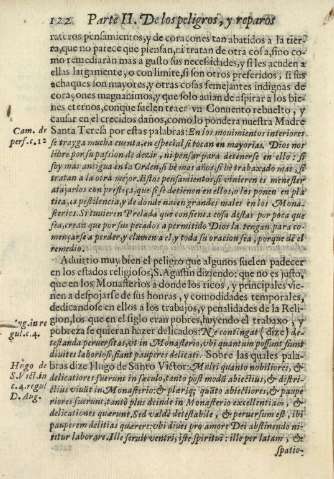 122 Parte II. De los peligros, y reparos
rateros pensamientos, y de coraçones tan abatidos a la tier-
ra, que no parece que piensan, ni tratan de otra cosa, sino co-
mo remediarán mas a gusto sus necesidades, y si les acuden a
ellas largamente, o con limite, si son otros preferidos, si sus
achaques son mayores, y otras cosas semejantes indignas de
coraçones magnanimos, y que solo auian de aspirar a los bie-
nes eternos, con que suelen traer vn Conuento rebuelto, y
causar en el crecidos daños, como lo pondera nuestra Madre
Santa Teresa por estas palabras: En los mouimientos interiores
se trayga mucha cuenta, en especial si tocan en mayorias. Dios nos
libre por su passion de dezir, ni pensar para detenerse en ello: si
soy mas antigua en la Orden, si he mas años, si he trabajado mas, si
tratan a la otra mejor. Estos pensamientos, si vinieren es menester
atajarlos con presteza, que si se detienen en ellos, o los ponen en pla
tica, es pestilencia, y de donde nacen grandes males en los Monas-
terios. Si tuuieren Prelada que consienta cosa destas por poca que
sea, crean que por sus pecados a permitido Dios la tengan para co-
mençarse a perder, y clamen a el, y toda su oracion sea, porque dè el
remedio.
Cam. de
perf. c. 12
Aduirtio muy bien el peligro que algunos suelen padecer
en los estados religiosos, S. Agustin diziendo: que no es justo,
que en los Monasterios a donde los ricos, y principales vie-
nen a despojarse de sus honras, y comodidades temporales,
dedicandose en ellos a los trabajos, y penalidades de la Reli-
gion, los que en el siglo eran pobres, huyendo el trabajo, y
pobreza se quieran hazer delicados: Ne contingat (dize) de-
testanda peruersitas, vt in Monasterio, vbi quantum possunt fiunt
diuites laboriosi, fiant pauperes delicati. Sobre las quales pala-
bras dize Hugo de Santo Victor: Multi quanto nobiliores, &
delicatiores fuerunt in sæculo, tanto post modū abiectius, & distri-
ctius viuūt in Monasterio: & plariq; quāto abiectiores, & paupe
riores fuerunt, tantò plus deinde in Monasterio excellentiam, &
delicationes querunt, Sed valdè detestabile, & peruersum est, ibi
pauperem delitias quærere: vbi diues pro amore Dei abstinendo ni-
titur laborare. Ille seruit ventri, iste spiritui: ille per latam, &
Aug. in re
gul. c. 4.
Hugo de
S. Vict. in
c. 4. regul
D. Aug.
spatio-